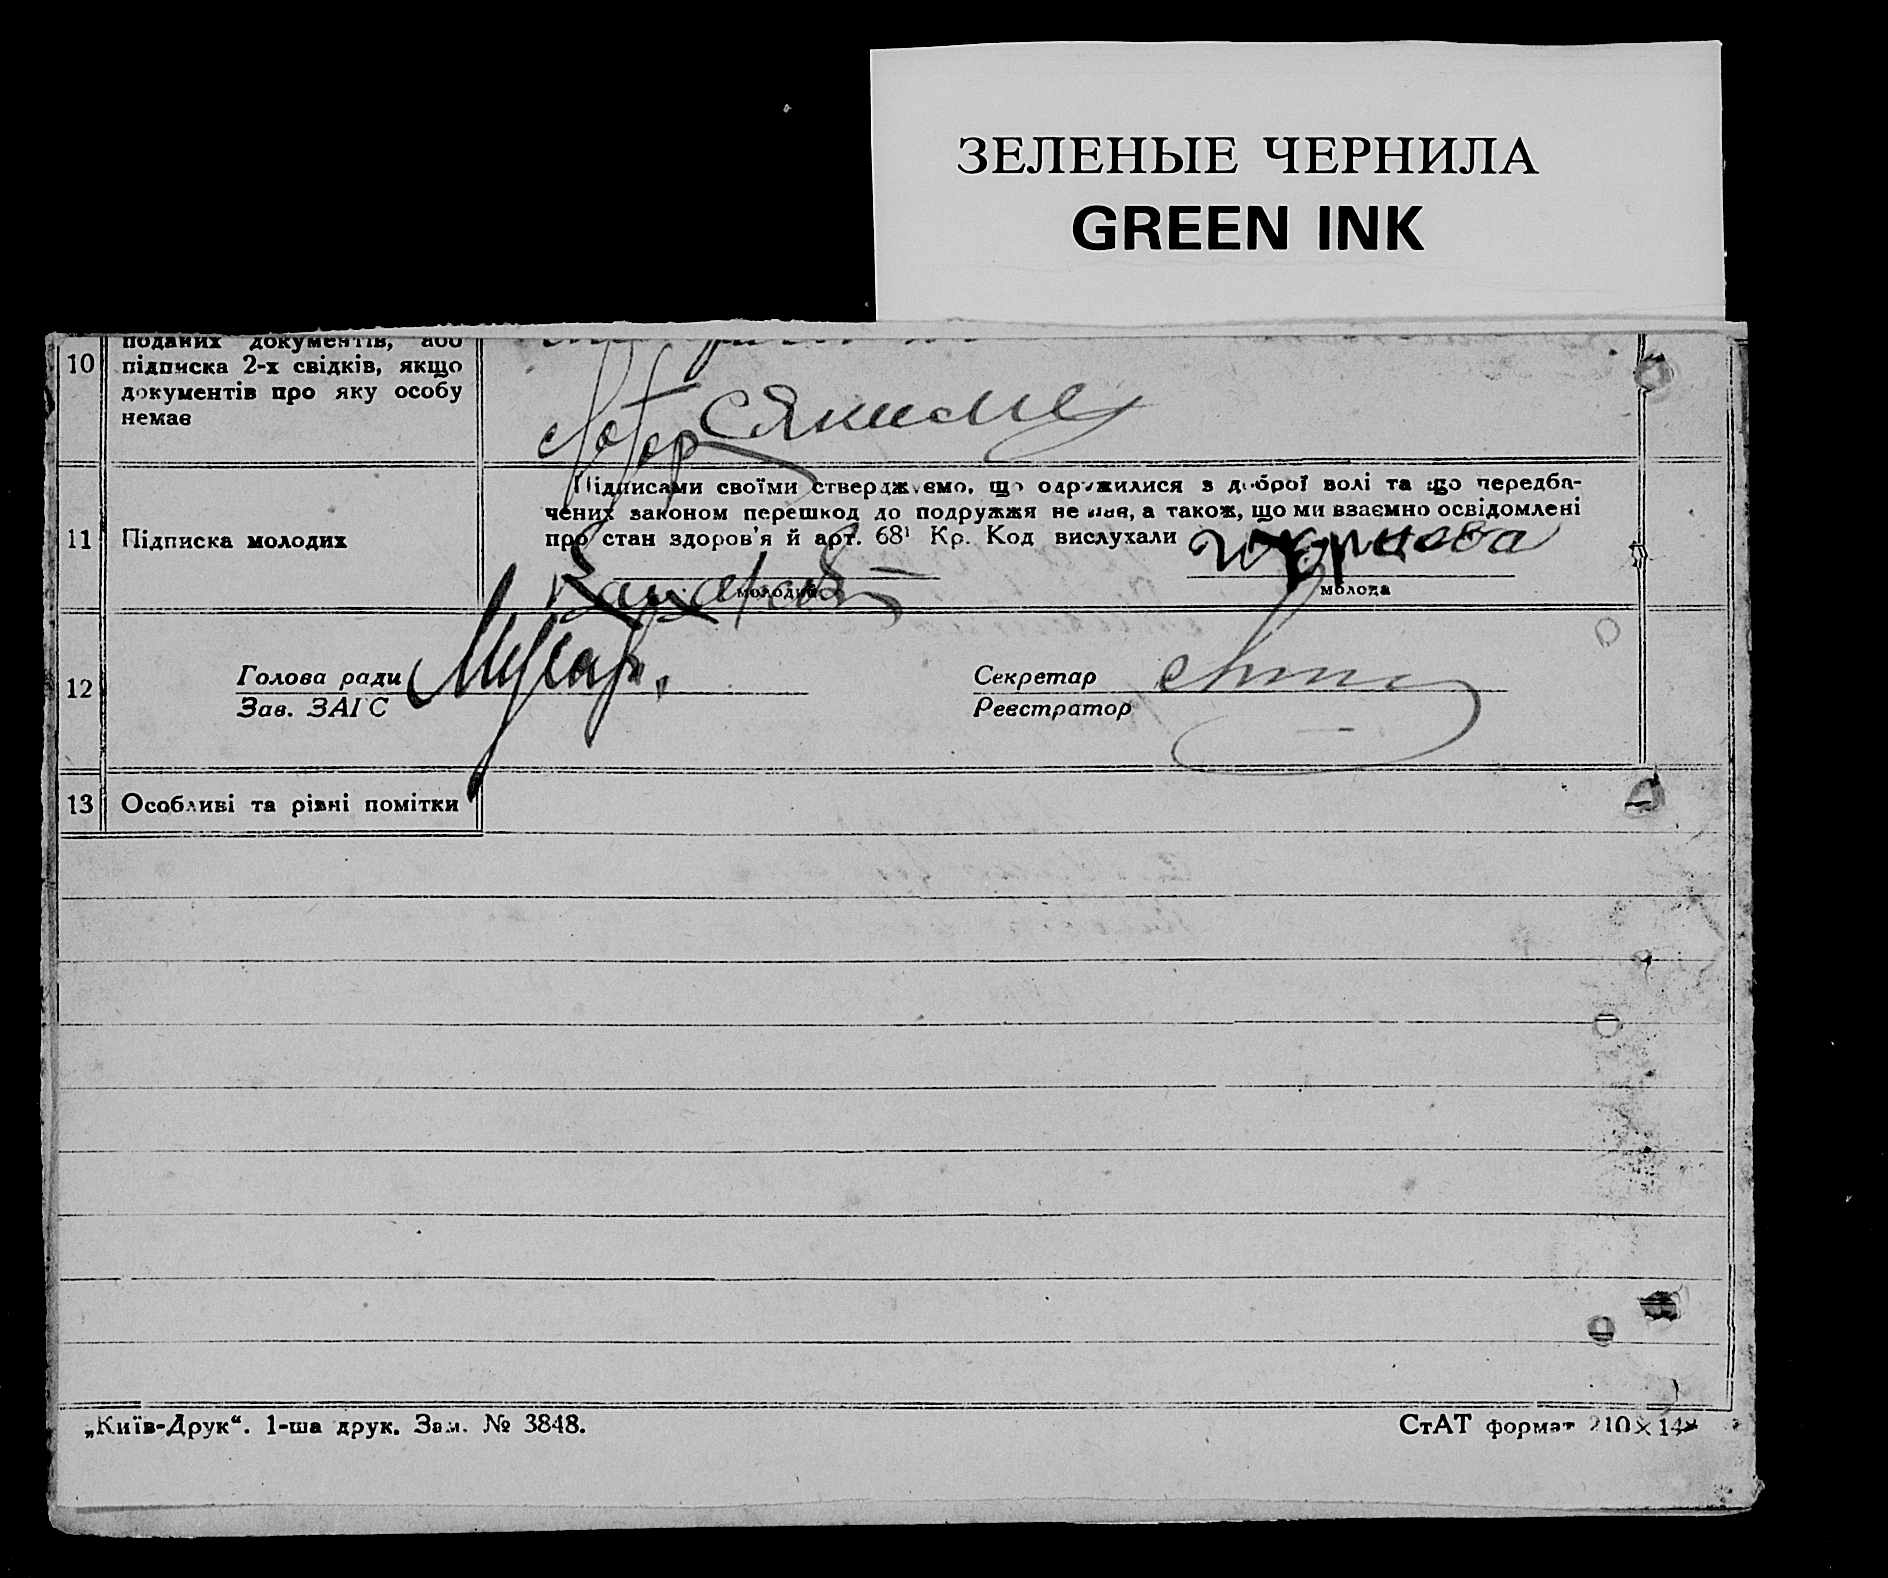 ЗЕЛЕНЫЕ ЧЕРНИЛА
GREEN INK
10
поданих документів, або
підписка 2-х свідків, якщо
документів про яку особу
немає
11
Підписка молодих
Підписами своїми стверджуємо, що одружилися з доброї волі та що передба-
чених законом перешкод до подружжя не має, а також, що ми взаємно освідомлені
про стан здоров'я й арт. 68¹ Кр. Код вислухали
молодий
молода
12
Голова ради
Зав. ЗАГС
Секретар
Реєстратор
13
Особливі та різні помітки
„Київ-Друк“. 1-ша друк. Зам. № 3848.
СтАТ формат 210×14